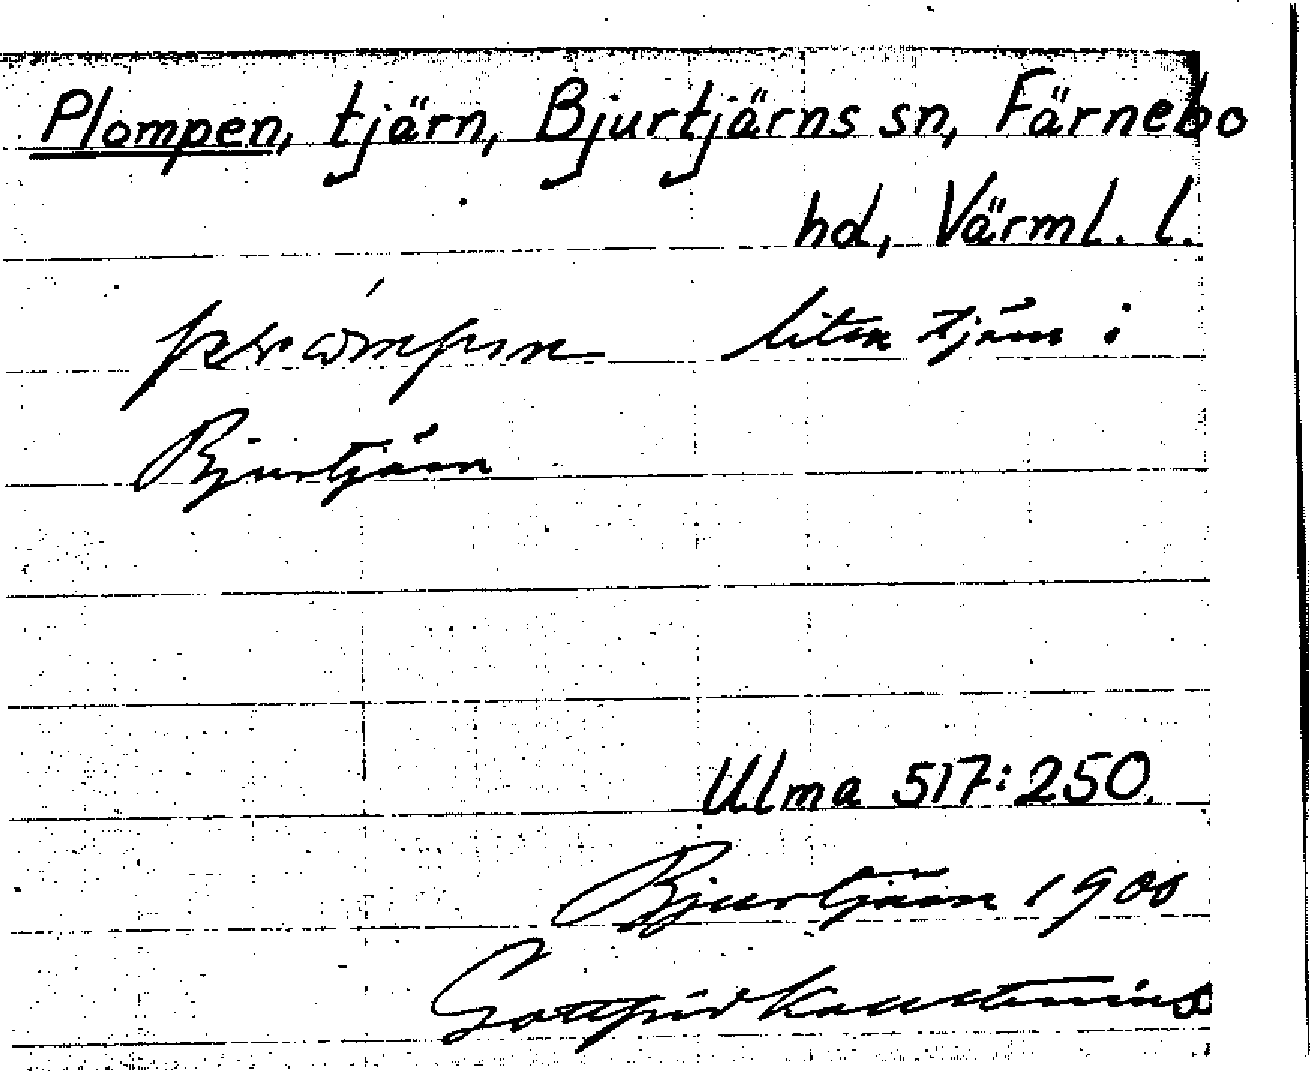 Plompen, tjärn, Bjurtjärns sn, Färnebo
hd, Värml. l.
liten tjärn i
Bjurtjärn
Ulma 517:250.
Bjurtjärn 1900
Gottfrid Kallstenius